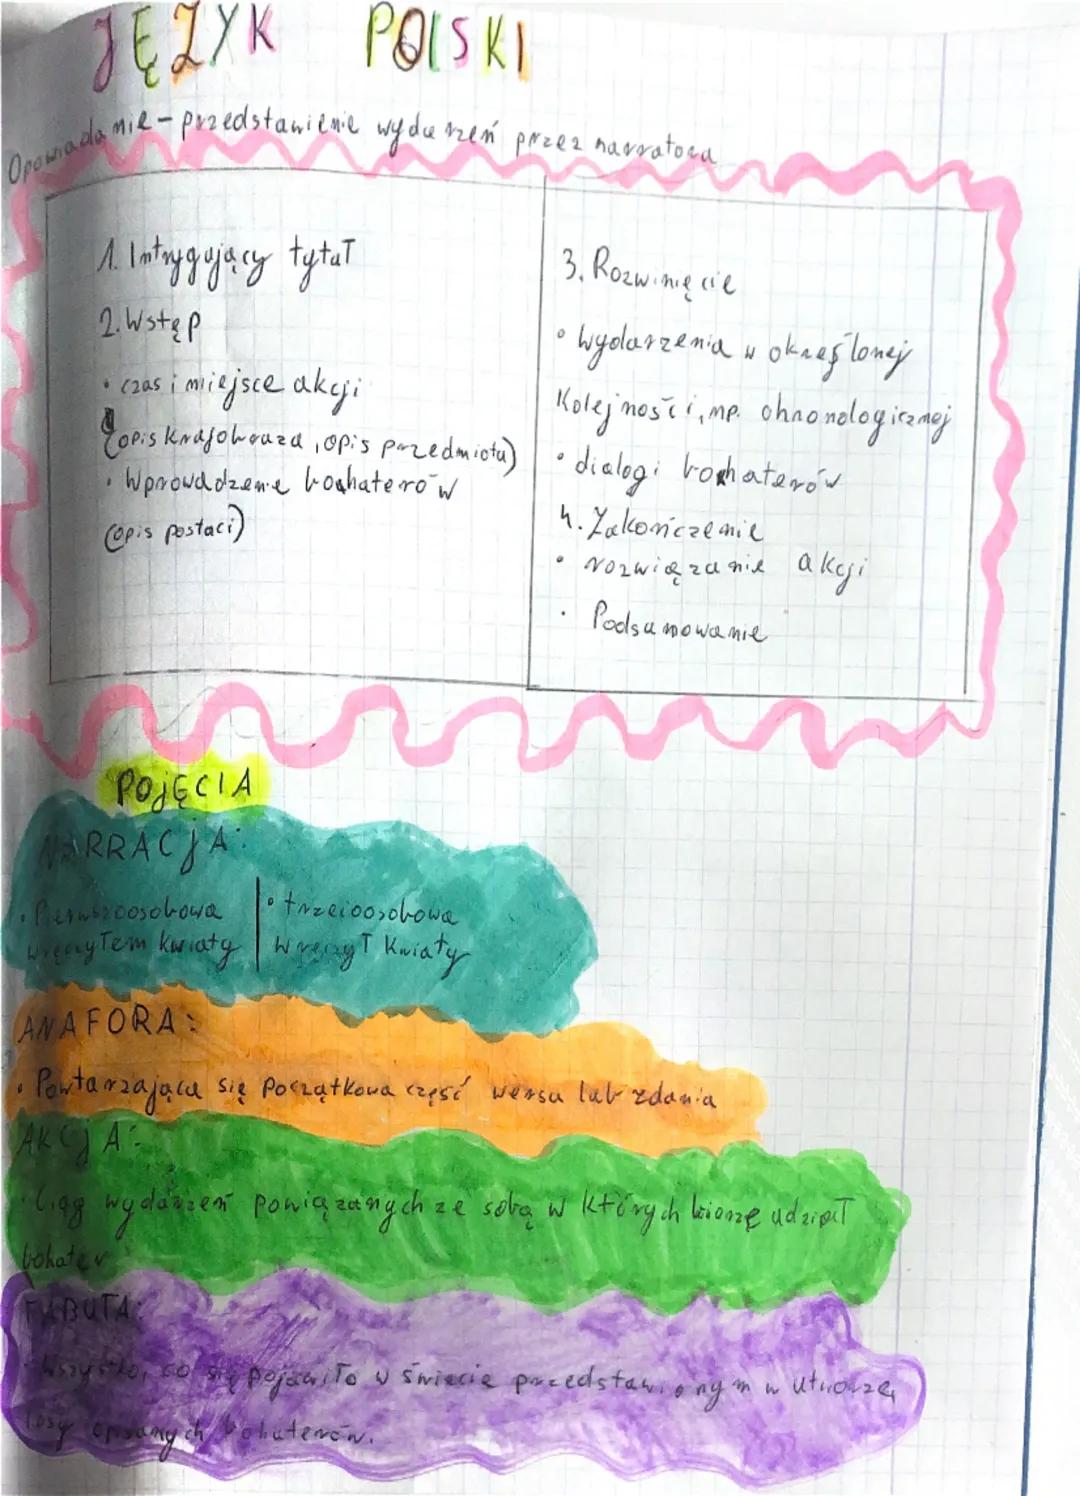 JĘZYK POLSKI
Opowiadanie - przedstawienie wydarzeń przez narratora
1. Intrygujący tytuł
2. Wstęp
• czas i miejsce akcji
(opis krajobraza, opis przedmiotu)
• Wprowadzenie bochaterów
(opis postaci)
3. Rozwinięcie
• wydarzenia w określonej
Kolejności, np. chronologicznej
• dialogi bohaterów
4. Zakończenie
• rozwiązanie akcji
• Podsumowanie
POJĘCIA
NARRACJA:
• Pierwszoosobowa
wręczyłem kwiaty
• trzeioosobowa
Wręczył Kwiaty
ANAFORA:
• Powtarzająca się początkowa część wersu lub zdania
AKCJA:
• Ciąg wydarzeń powiązanych ze sobą w których bierze udział
bohater
FABUŁA:
• Wszystko, co się pojawiło w świecie przedstawionym w utworze,
losy opisanych bohaterów.